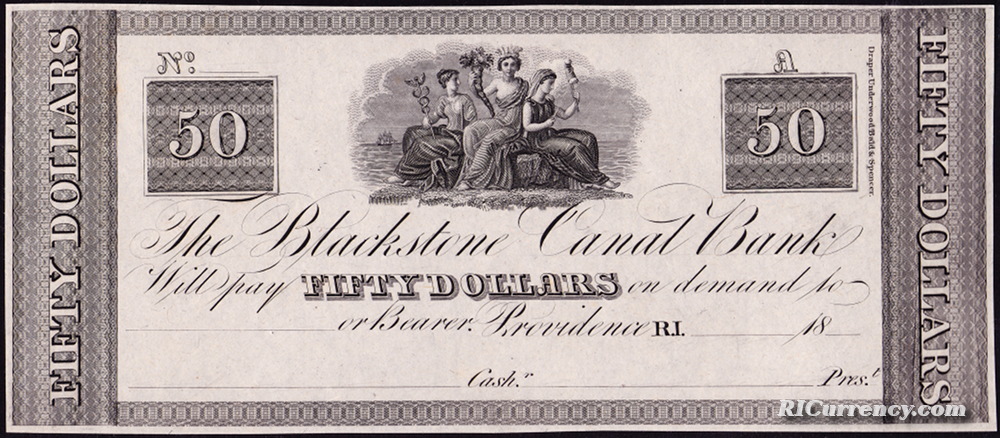 FIFTY DOLLARS
Nº.
A
50
50
Draper Underwood Bald & Spencer.
The Blackstone Canal Bank
Will pay FIFTY DOLLARS on demand to
or Bearer. Providence R.I. 18
Cash.r
Pres.t
FIFTY DOLLARS
RICurrency.com